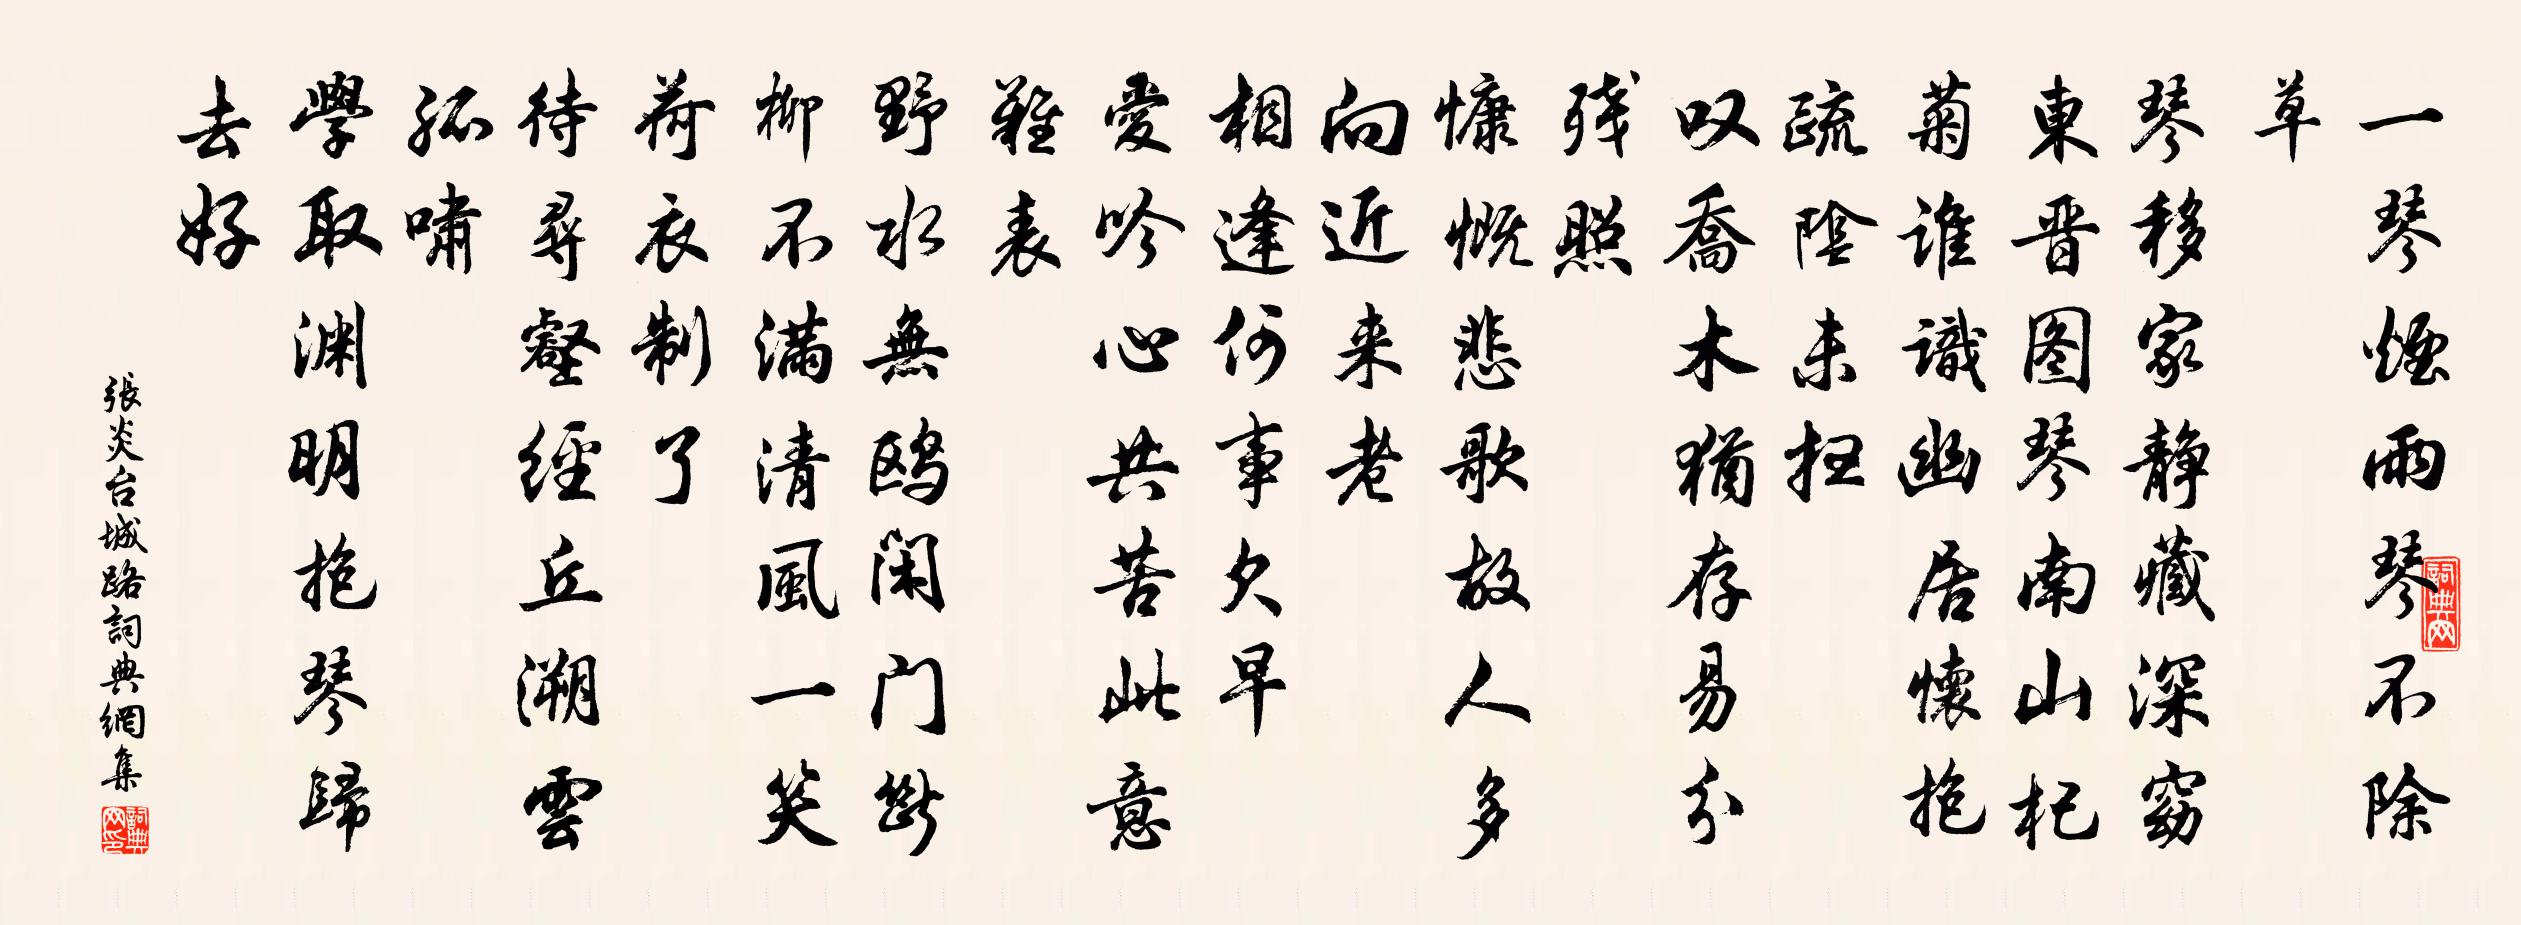 一琴煙雨琴不除
草
琴移家静藏深窈
東晋图琴南山杞
菊谁識幽居懷抱
疏陰未扫
叹喬木猶存易分
残照
慷慨悲歌故人多
向近来老
相逢何事欠早
愛吟心共苦此意
難表
野水無鸥闲门斷
柳不满清風一笑
荷衣制了
待尋壑經丘溯雲
孤嘯
學取渊明抱琴歸
去好
張炎台城路詞典網集
詞典网
詞典网印